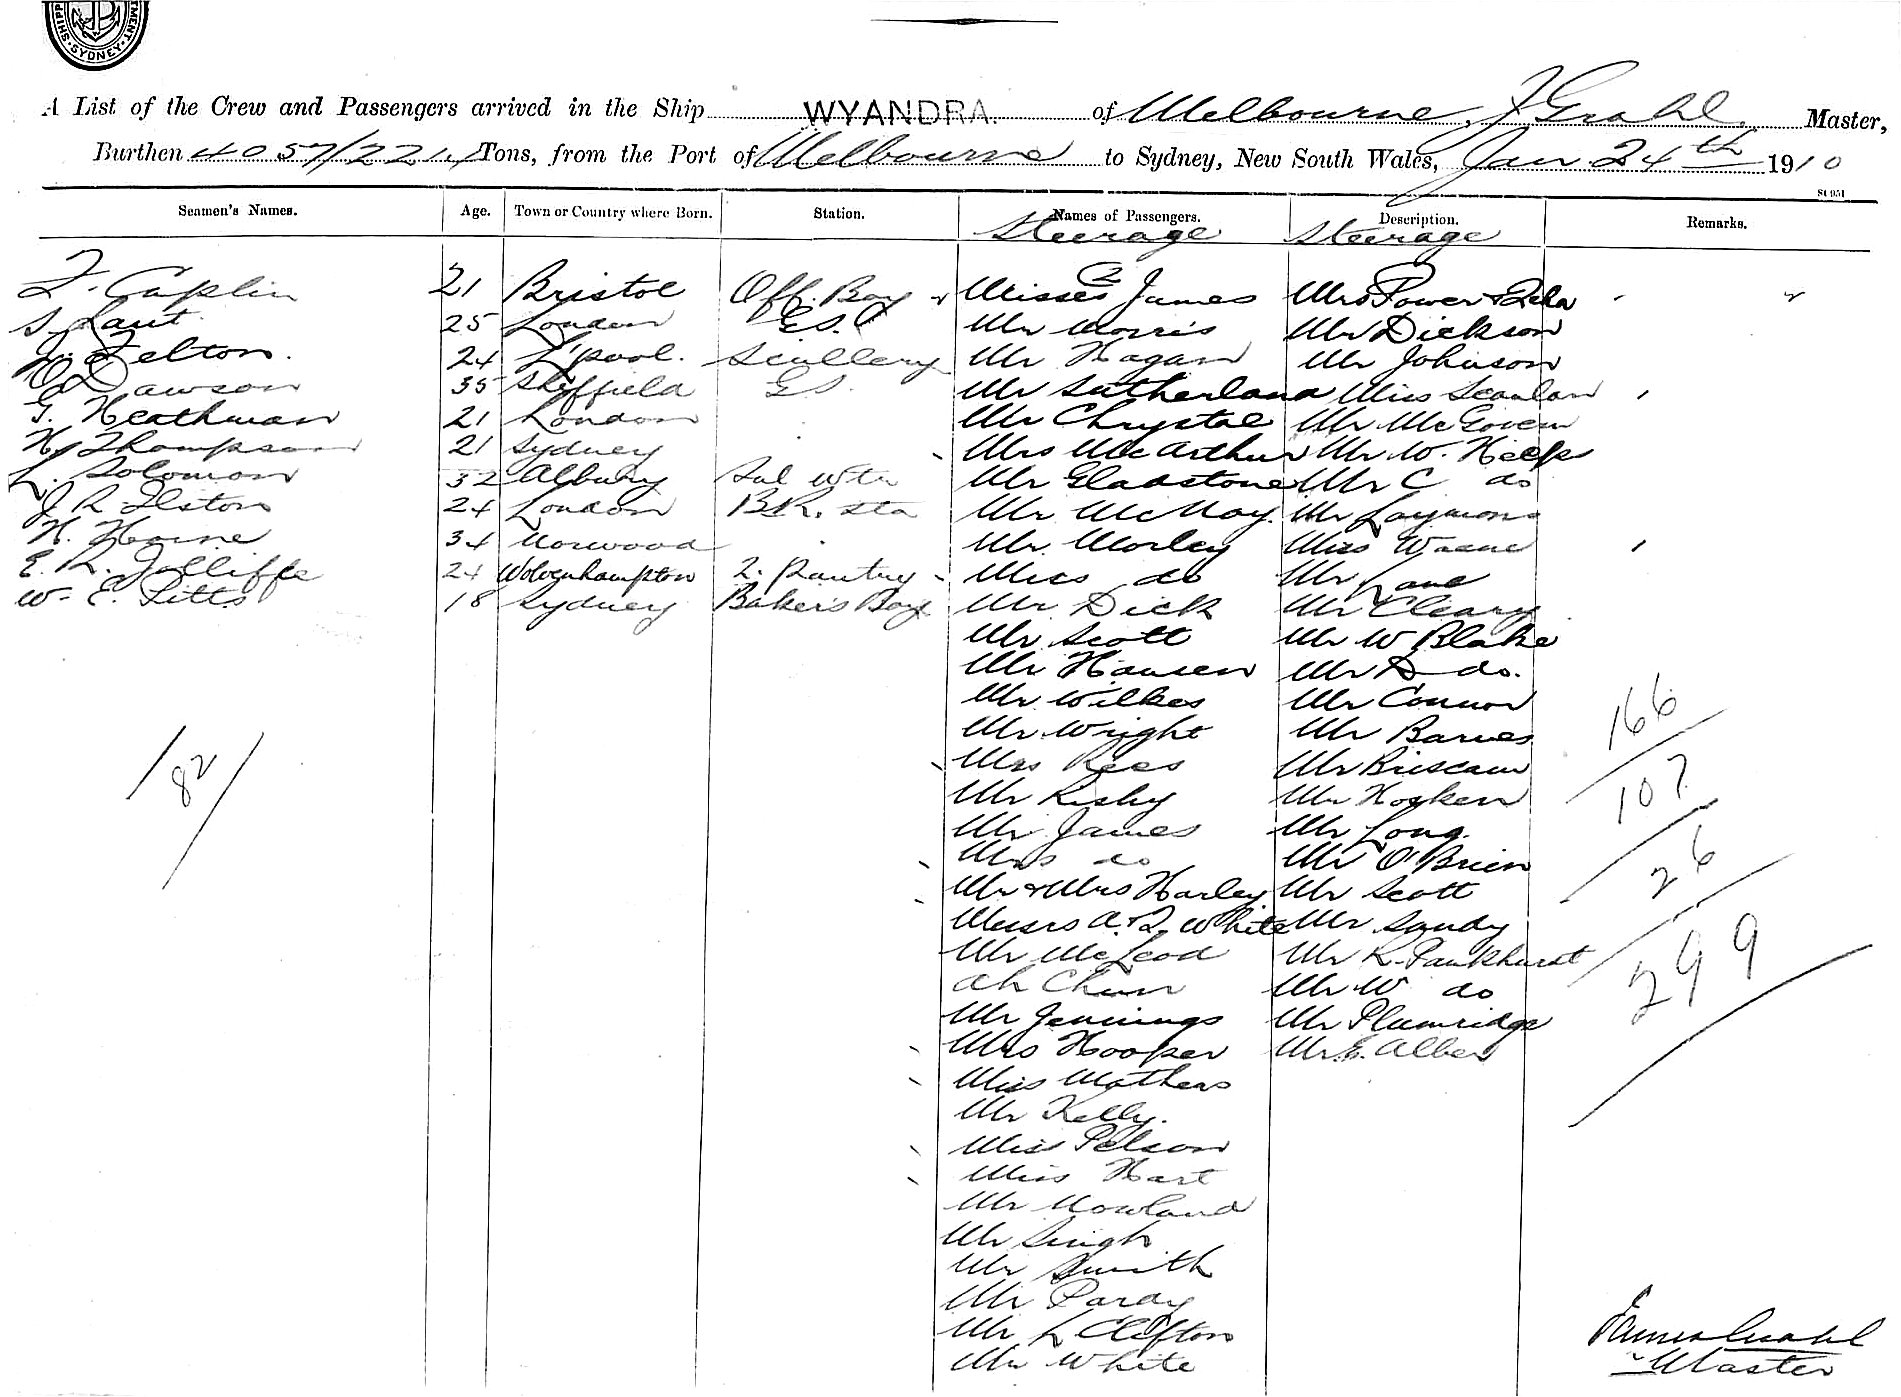 SHIPP
SYDNEY
TMENT
A List of the Crew and Passengers arrived in the Ship WYANDRA. of Melbourne, J Grahl, Master,
Burthen 4057/221.1 Tons, from the Port of Melbourne to Sydney, New South Wales, Jan 24th 1910
St 951
Seamen's Names. Age. Town or Country where Born. Station. Names of Passengers. Description. Remarks.
Steerage Steerage
Caplin 21 Bristol Off. Boy Misses 2 James Mrs Power &
S. Laut 25 London G.S. Mr Morris Mr Dickson
Felton. 24 L'pool. Scullery Mr Hagan Mr Johnson
Dawson 35 Sheffield G.S. Mr Sutherland Miss Scanlan
G. Heathman 21 London Mr Chrystal Mr McGovern
H. Thompson 21 Sydney Mrs McArthur Mr W. Heeps
L. Solomon 32 Albury Sal wtr Mr Gladstone Mr C do
J R Ilston 24 London B.R. sta Mr McMay. Mr Laymons
H. Horne 34 Norwood Mr. Morley Miss
E. R. Jolliffe 24 Wolvenhampton 2. Pantry Miss do Mr Lane
W. E. Pitts 18 Sydney Bakers Boy Mr Dick Mr Cleary
Mr Scott Mr W Blake
Mr Hansen Mr D do.
Mr Wilkes Mr Connor
Mr Wright Mr Barnes
Mrs Rees Mr
Mr Risby Mr Hosken
Mr James Mr Long.
Mrs do Mr O'Brien
Mr & Mrs Harley Mr Scott
Messrs A. & J. White Mr Sandy
Mr McLeod Mr R. Pankhurst
Ah Chun Mr W do
Mr Jennings Mr Plumridge
Mrs Hooper Mr. G. Alber
Miss Mathers
Mr Kelly.
Miss Pelson
Miss Hart
Mr Rowland
Mr Singh
Mr Smith
Mr Pardy
Mr L Clifton
Mr White
82
166
107
26
299
James Grahl
Master